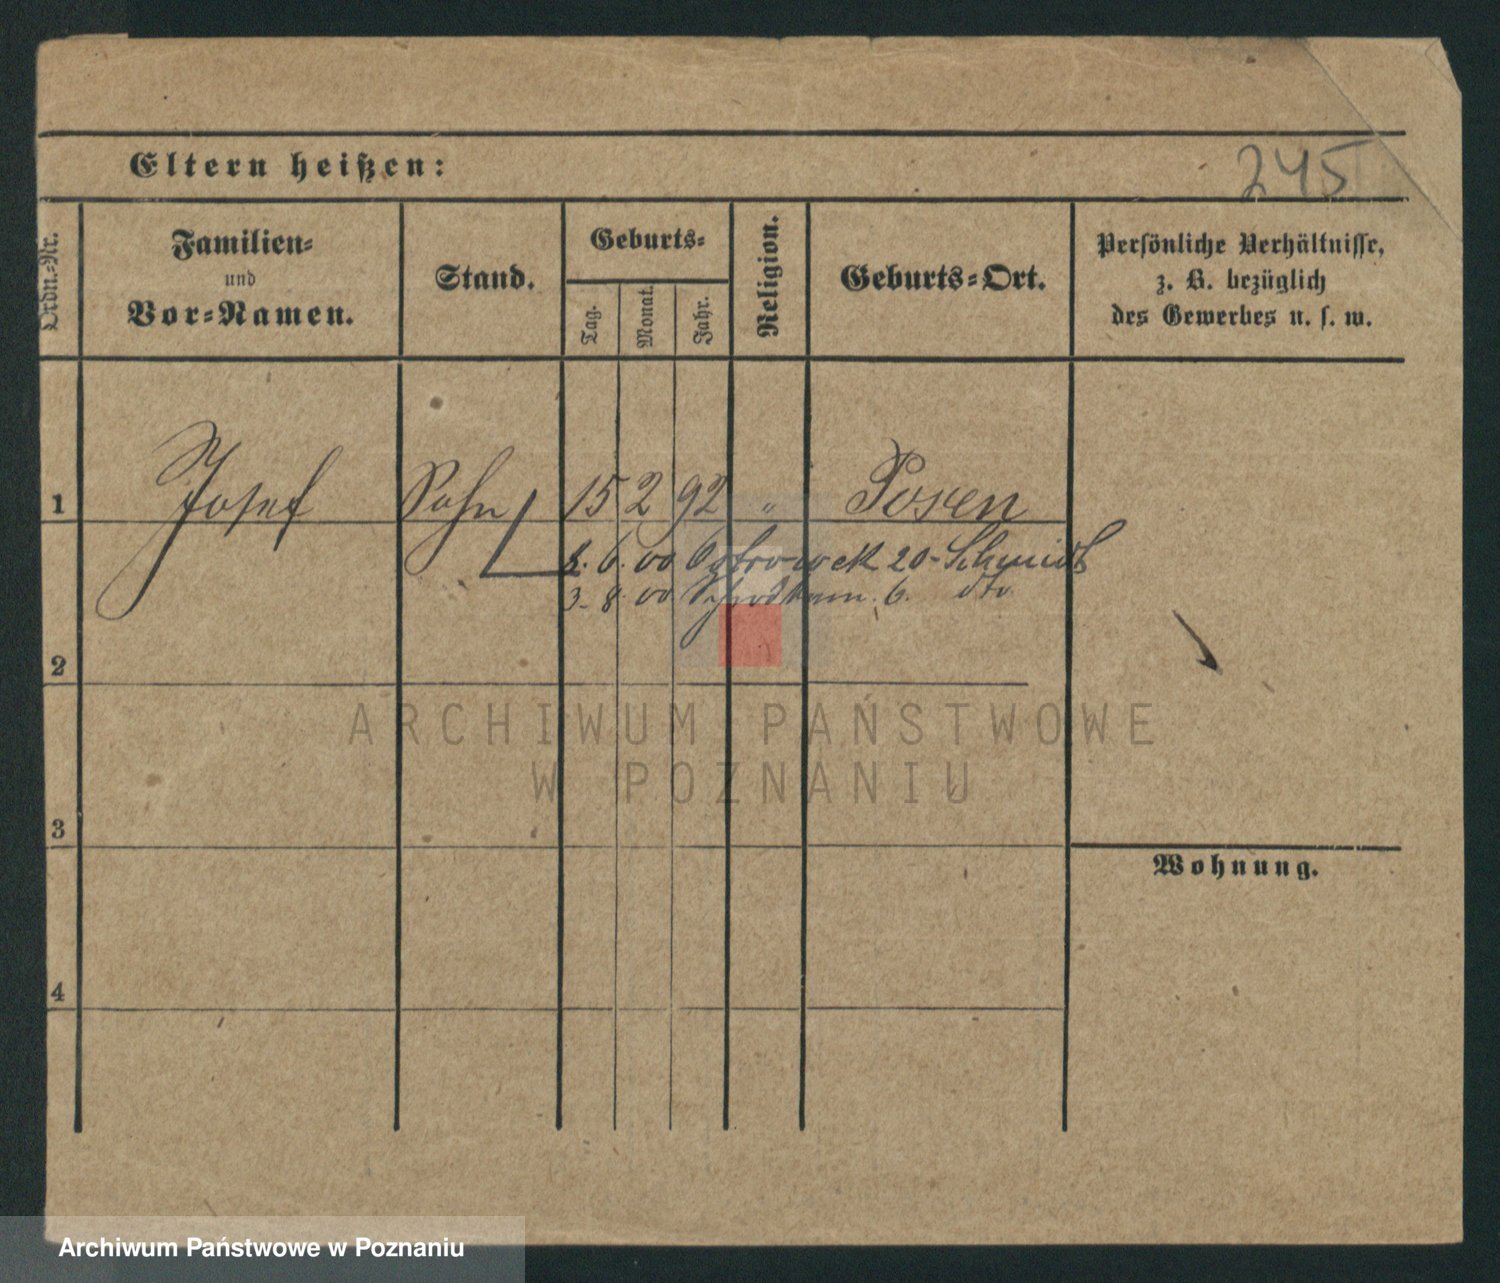 245
Eltern heißen:
Ordn.-Nr.
Familien-
und
Vor-Namen.
Stand.
Geburts-
Tag.
Monat.
Jahr.
Religion.
Geburts-Ort.
Persönliche Verhältnisse,
z. B. bezüglich
des Gewerbes u. s. w.
1 Josef Sohn 15 2 92 " Posen
2. 6. 00 Ostrowek 20 - Schmidt
3. 8. 00 6. dto
2
ARCHIWUM PAŃSTWOWE
W POZNANIU
3
Wohnung.
4
Archiwum Państwowe w Poznaniu